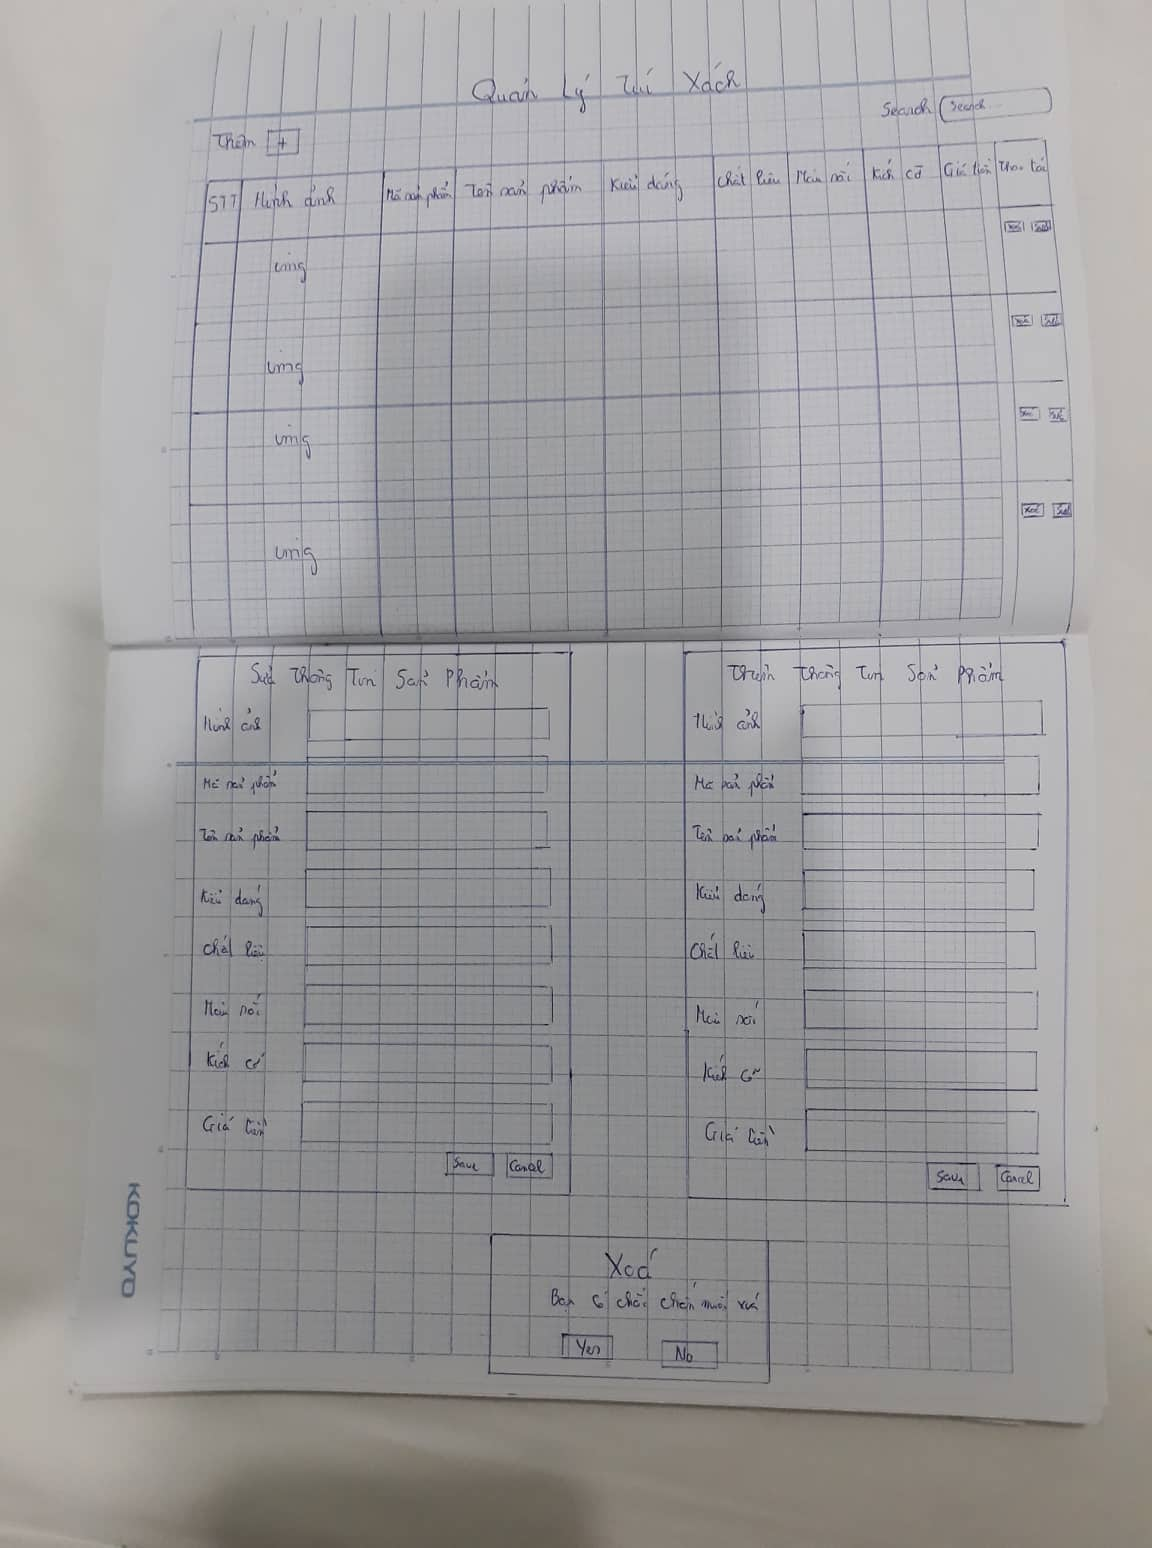 Quản Lý Túi Xách
Search Search...
Thêm +
STT Hình ảnh Mã sản phẩm Tên sản phẩm Kiểu dáng Chất liệu Màu sắc Kích cỡ Giá tiền Thao tác
img
Xoá Sửa
img
Xoá Sửa
img
Xoá Sửa
img
Xoá Sửa
Sửa Thông Tin Sản Phẩm
Hình ảnh
Mã sản phẩm
Tên sản phẩm
Kiểu dáng
Chất liệu
Màu sắc
Kích cỡ
Giá tiền
Save Cancel
Thêm Thông Tin Sản Phẩm
Hình ảnh
Mã sản phẩm
Tên sản phẩm
Kiểu dáng
Chất liệu
Màu sắc
Kích cỡ
Giá tiền
Save Cancel
Xoá
Bạn có chắc chắn muốn xoá
Yes No
KOKUYO